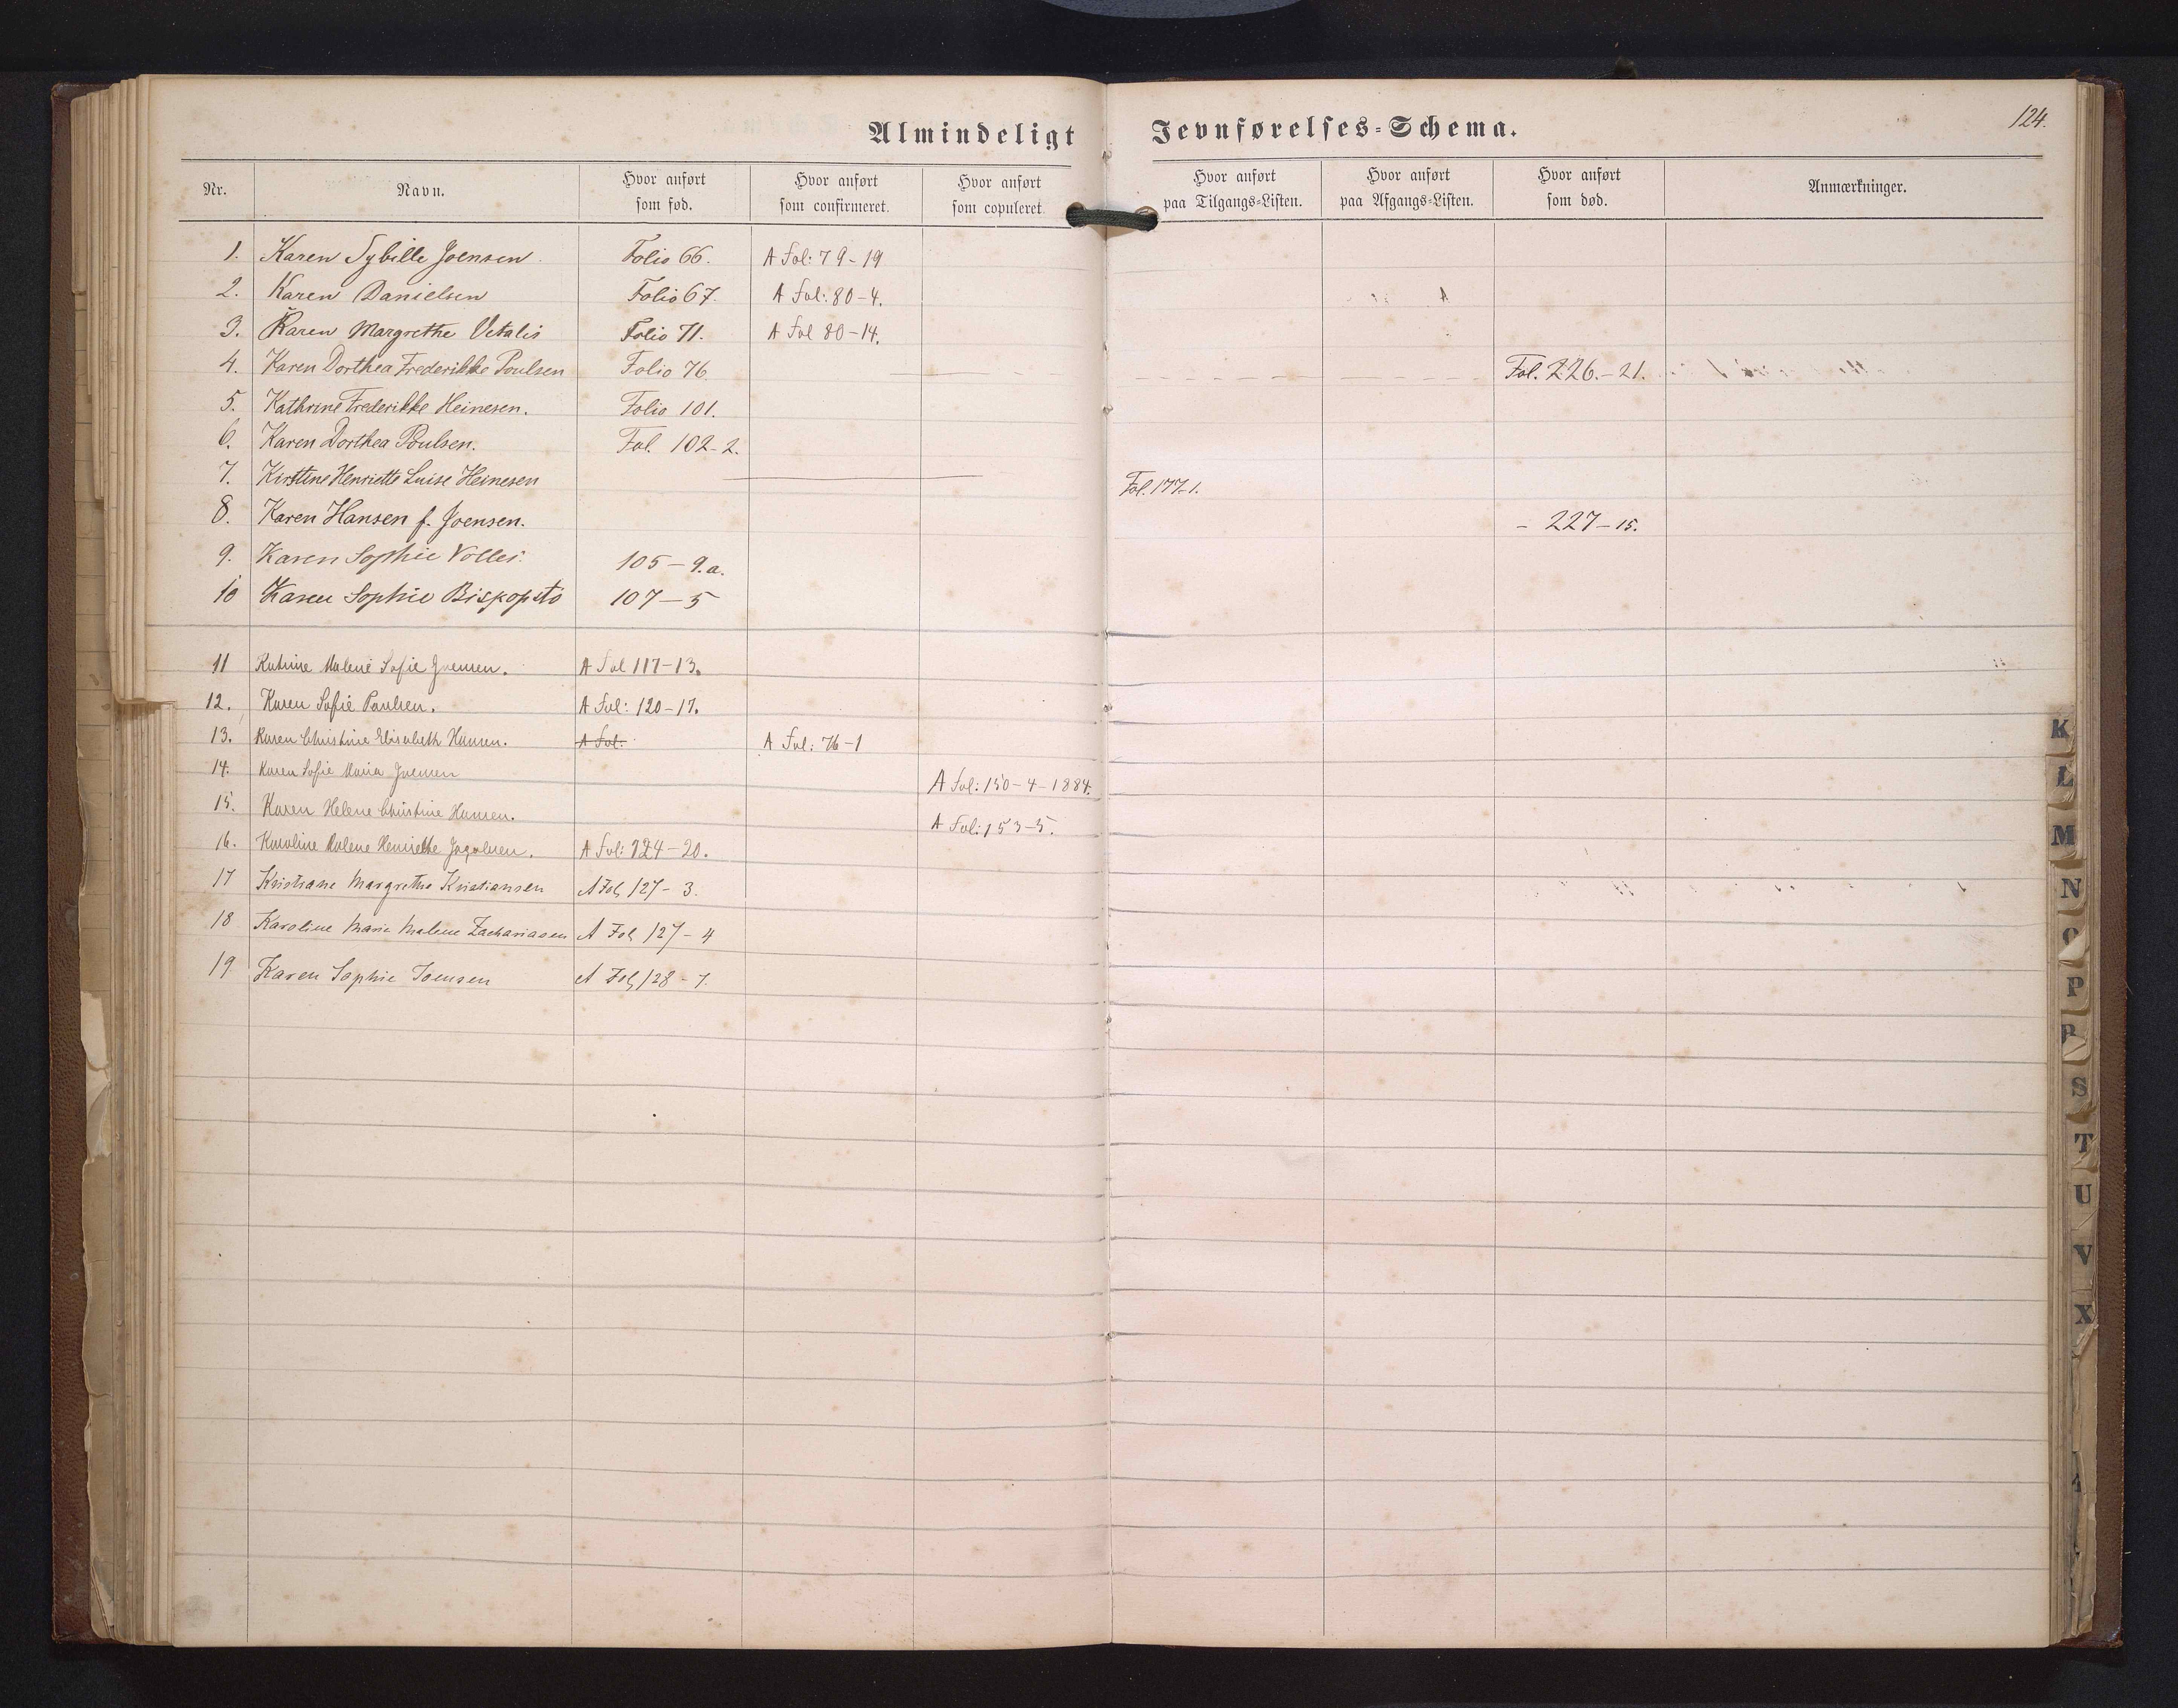 Almindeligt Jevnførelses-Schema.
124.
Nr. Navn. Hvor anført som fød. Hvor anført som confirmeret. Hvor anført som copuleret. Hvor anført paa Tilgangs-Listen. Hvor anført paa Afgangs-Listen. Hvor anført som død. Anmærkninger.
1. Karen Sybille Joensen. Folio 66. A Fol: 79-19
2. Karen Danielsen Folio 67. A Fol: 80-4.
3. Karen Margrethe Vitalis Folio 71. A Fol 80-14.
4. Karen Dorthea Frederikke Poulsen Folio 76. Fol. 226.-21.
5. Kathrine Frederikke Heinesen. Folio 101.
6. Karen Dorthea Poulsen. Fol. 102-2.
7. Kirstine Henriette Luise Heinesen Fol. 177-1.
8. Karen Hansen f. Joensen. - 227-15.
9. Karen Sophie 105-9.a.
10 Karen Sophie Bispopstö 107-5
11 Katrine Malene Sofie Joensen. A Fol 117-13.
12. Karen Sofie Paulsen. A Fol: 120-17.
13. Karen Christine Elisabeth Hansen. A Fol: A Fol: 76-1
14. Karen Sofie Maria Joensen A Fol: 150-4-1884.
15. Karen Helene Christine Hansen. A Fol: 153-5.
16. Karoline Malene Henriette Jogvansen. A Fol: 124-20.
17 Kristiane Margrethe Kristiansen A Fol 127-3.
18 Karoline Marie Malene Zachariasen A Fol 127-4
19 Karen Sophie Joensen A Fol 128-7.
K
L
M
N
O
P
R
S
T
U
V
X